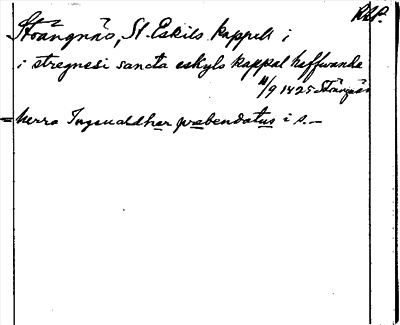 RAP.
Strängnäs, St. Eskils kappell i
i stregnesi sancta eskyls kappal haffwanda
11/9 1425 Strängnäs
= herra Ingeualdhar præbendatus i s. –